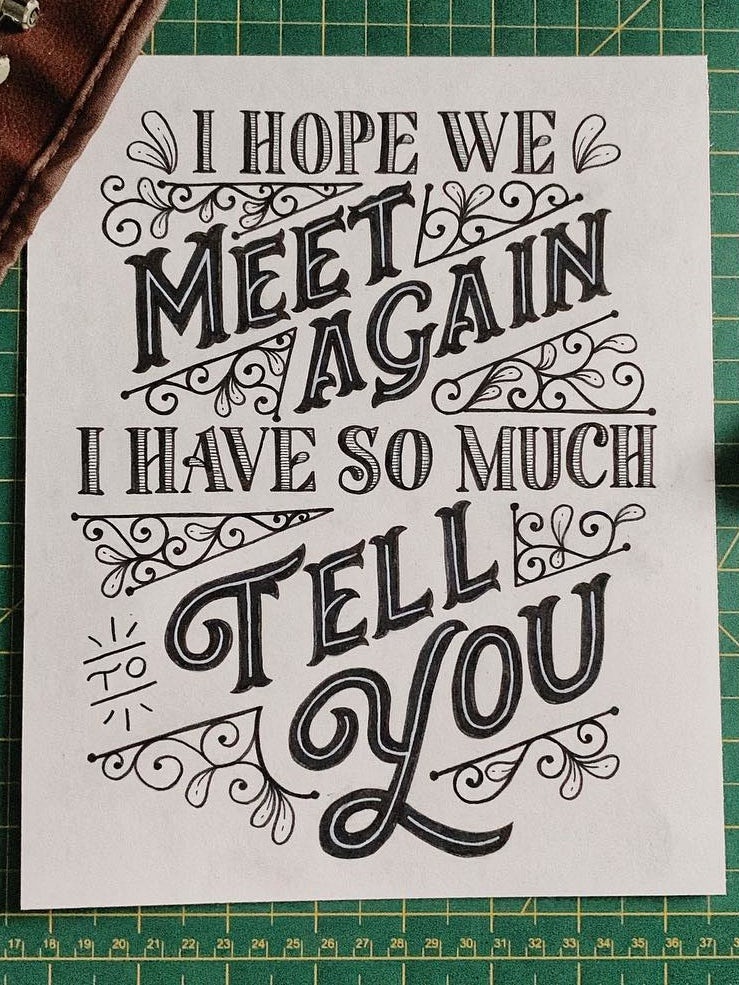 I HOPE WE
MEET
AGAIN
I HAVE SO MUCH
TO
TELL
YOU
17 18 19 20 21 22 23 24 25 26 27 28 29 30 31 32 33 34 35 36 37